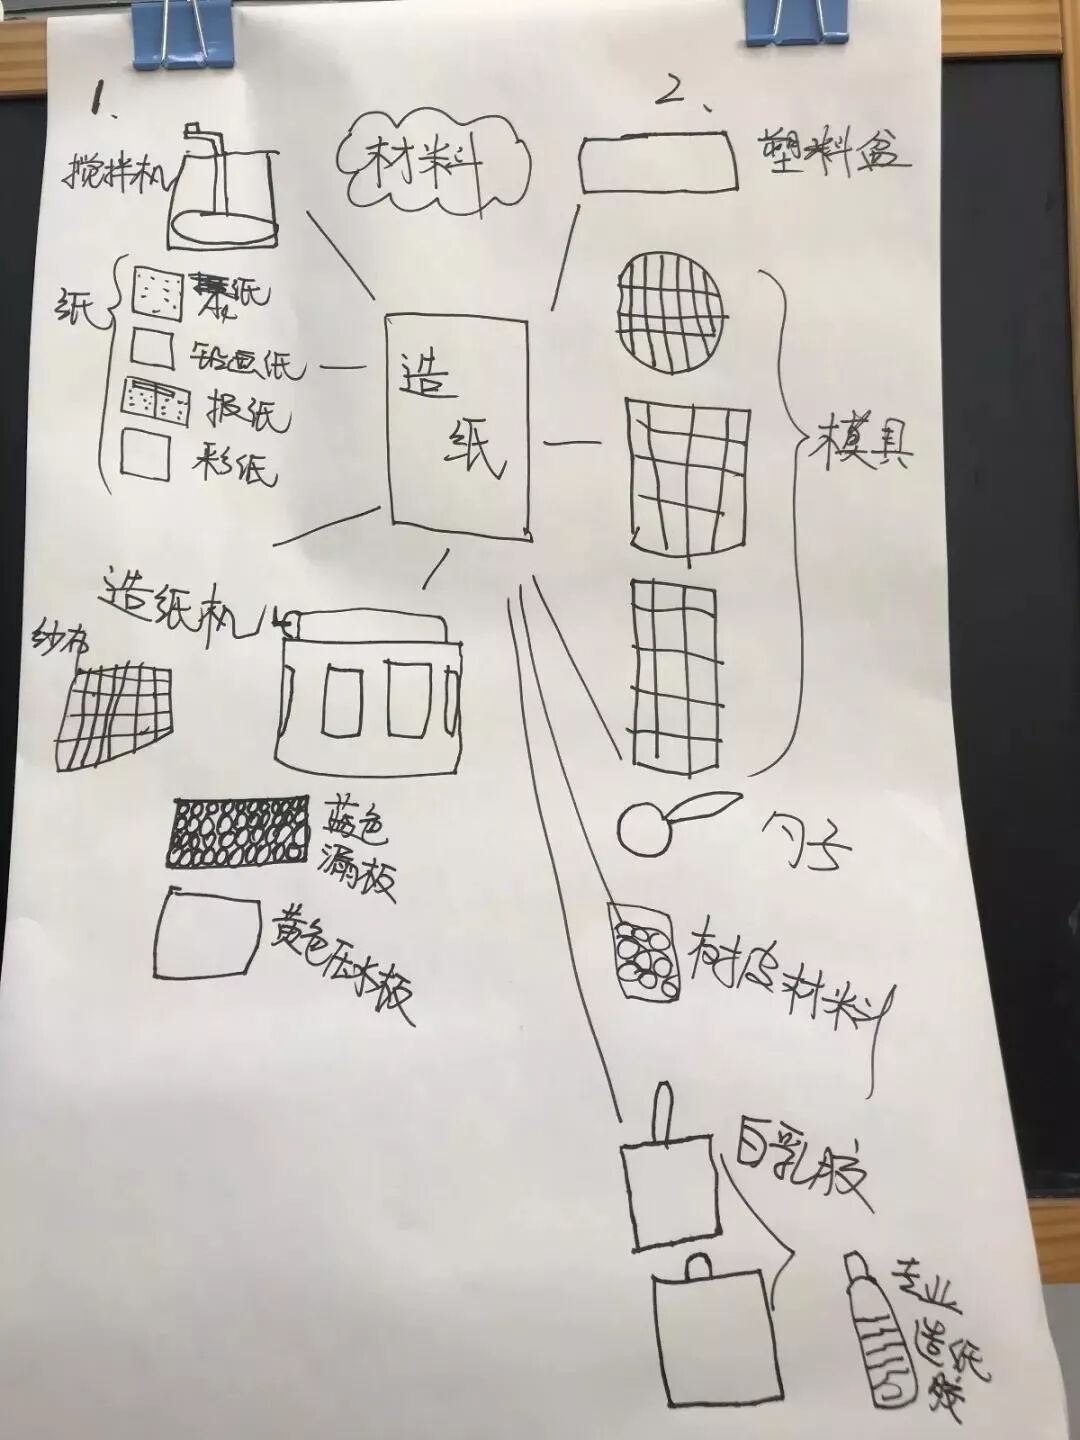 1、
材料
2、
搅拌机
塑料盆
纸
纸
铅画纸
报纸
彩纸
造
纸
模具
造纸机
纱布
蓝色
漏板
黄色压水板
勺子
树皮材料
白乳胶
专业
造纸
胶